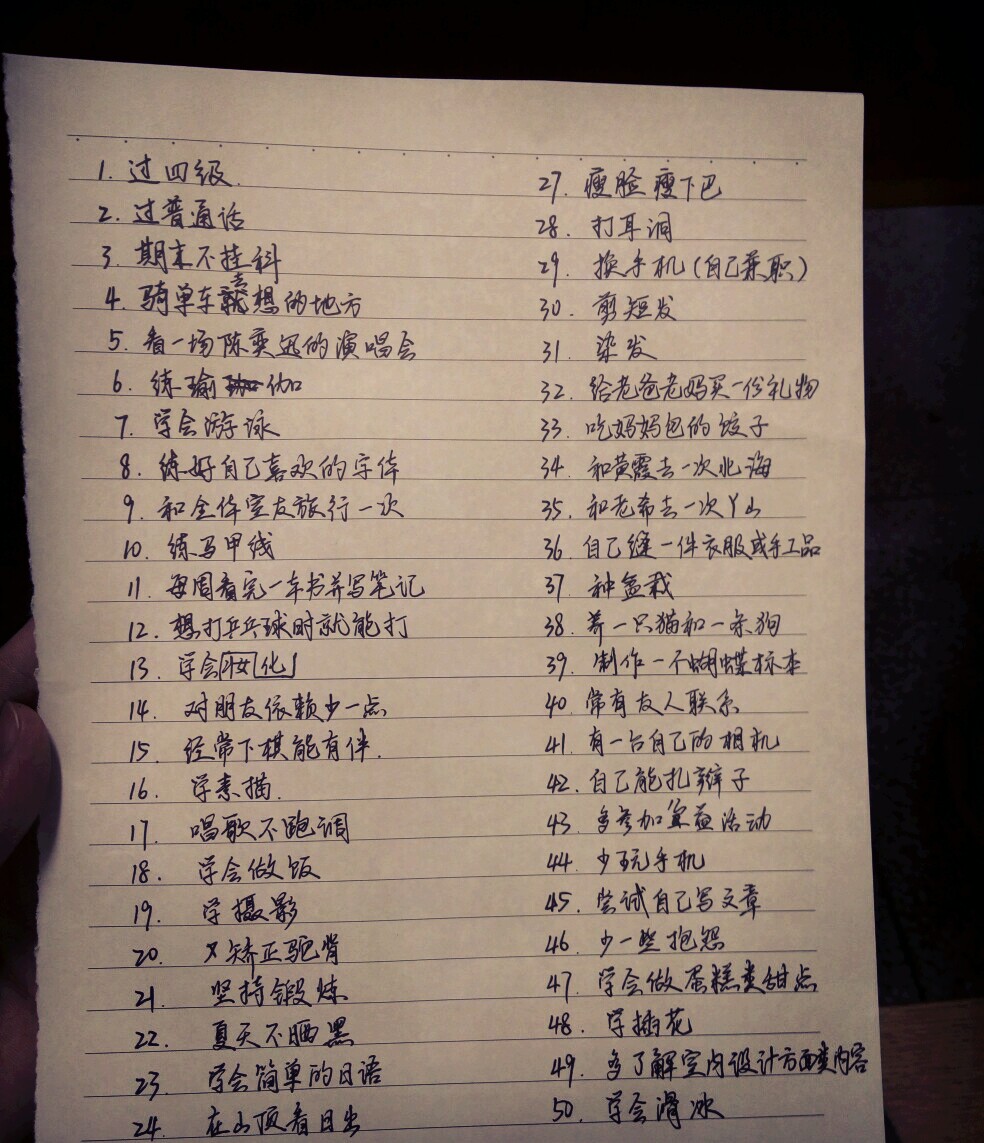 1. 过四级.
2. 过普通话
3. 期末不挂科
4. 骑单车去想的地方
5. 看一场陈奕迅的演唱会
6. 练瑜伽
7. 学会游泳
8. 练好自己喜欢的字体
9. 和全体室友旅行一次
10. 练马甲线
11. 每周看完一本书并写笔记
12. 想打乒乓球时就能打
13. 学会妆化
14. 对朋友依赖少一点
15. 经常下棋能有伴.
16. 学素描.
17. 唱歌不跑调
18. 学会做饭
19. 学摄影
20. 矫正驼背
21. 坚持锻炼
22. 夏天不晒黑
23. 学会简单的日语
24. 在山顶看日出
27. 瘦脸瘦下巴
28. 打耳洞
29. 换手机(自己兼职)
30. 剪短发
31. 染发
32. 给老爸老妈买一份礼物
33. 吃妈妈包的饺子
34. 和黄霞去一次北海
35. 和老希去一次丫山
36. 自己缝一件衣服或手工品
37. 种盆栽
38. 养一只猫和一条狗
39. 制作一个蝴蝶标本
40. 常有友人联系
41. 有一台自己的相机
42. 自己能扎辫子
43. 多参加公益活动
44. 少玩手机
45. 尝试自己写文章
46. 少一些抱怨
47. 学会做蛋糕类甜点
48. 学插花
49. 多了解室内设计方面类内容
50. 学会滑冰